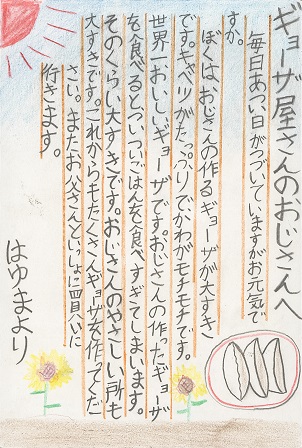 ギョーザ屋のおじさんへ
毎日あつい日がつづいていますがお元気で
すか。
ぼくは、おじさんの作るギョーザが大すき
です。キャベツがたっぷりでかわがモチモチです。
世界一おいしいギョーザです。おじさんの作ったギョーザ
を食べるとついついごはんを食べすぎてしまいます。
そのくらい大すきです。おじさんのやさしい所も
大すきです。これからもたくさんギョーザを作ってくだ
さい。またお父さんといっしょに買いに
行きます。
はゆまより